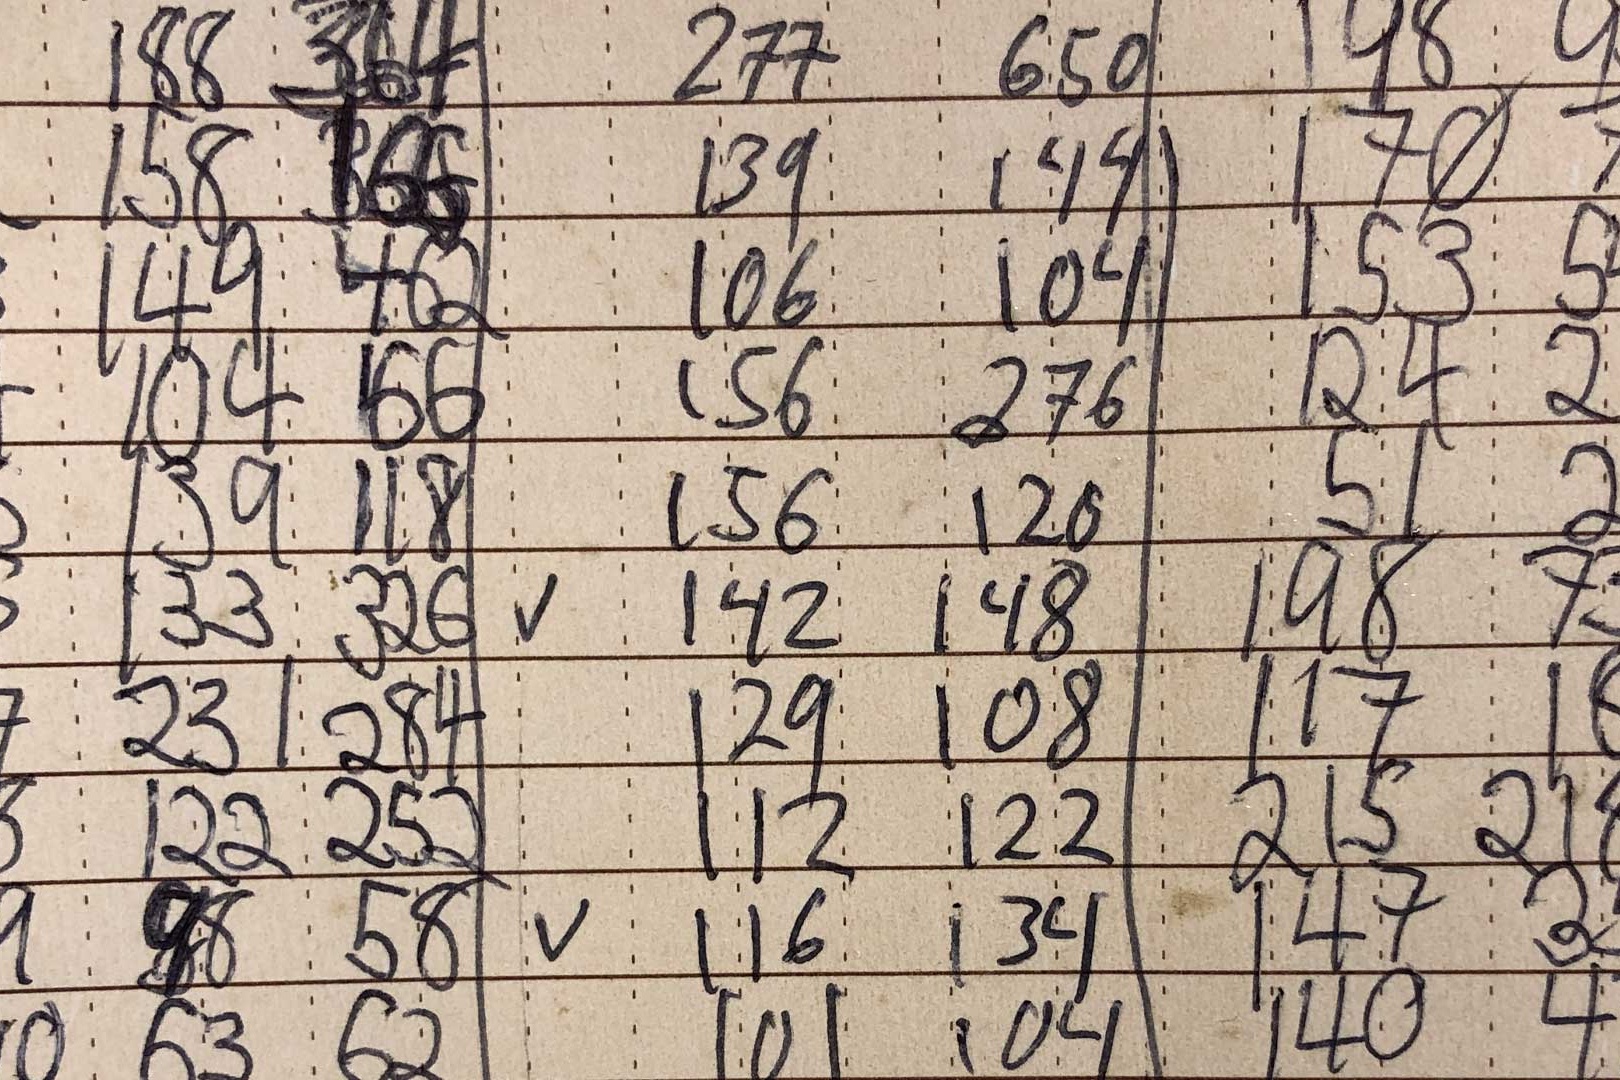 188 364 277 650 198
158 139 144 170
149 402 106 104 153
104 66 156 276 124 2
139 118 156 120 51 2
133 326 v 142 148 198 73
231 284 129 108 117
122 252 112 122 215 218
98 58 v 116 134 147
63 62 101 104 140 4